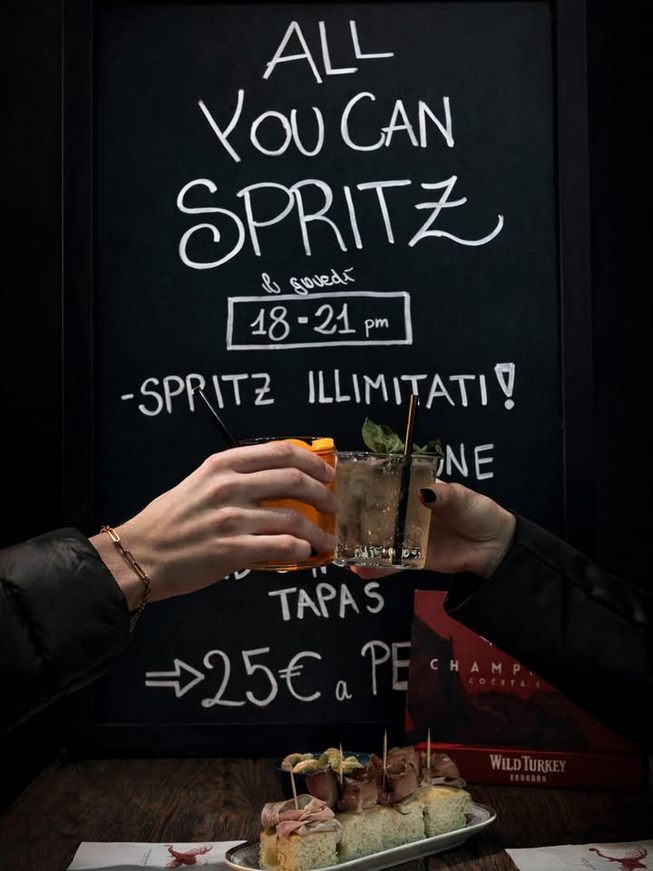 ALL
YOU CAN
SPRITZ
il giovedì
18-21 pm
-SPRITZ ILLIMITATI!
NE
TAPAS
⇒25€ a PE
CHAMP
COCKTAI
WILD TURKEY
BOURBON